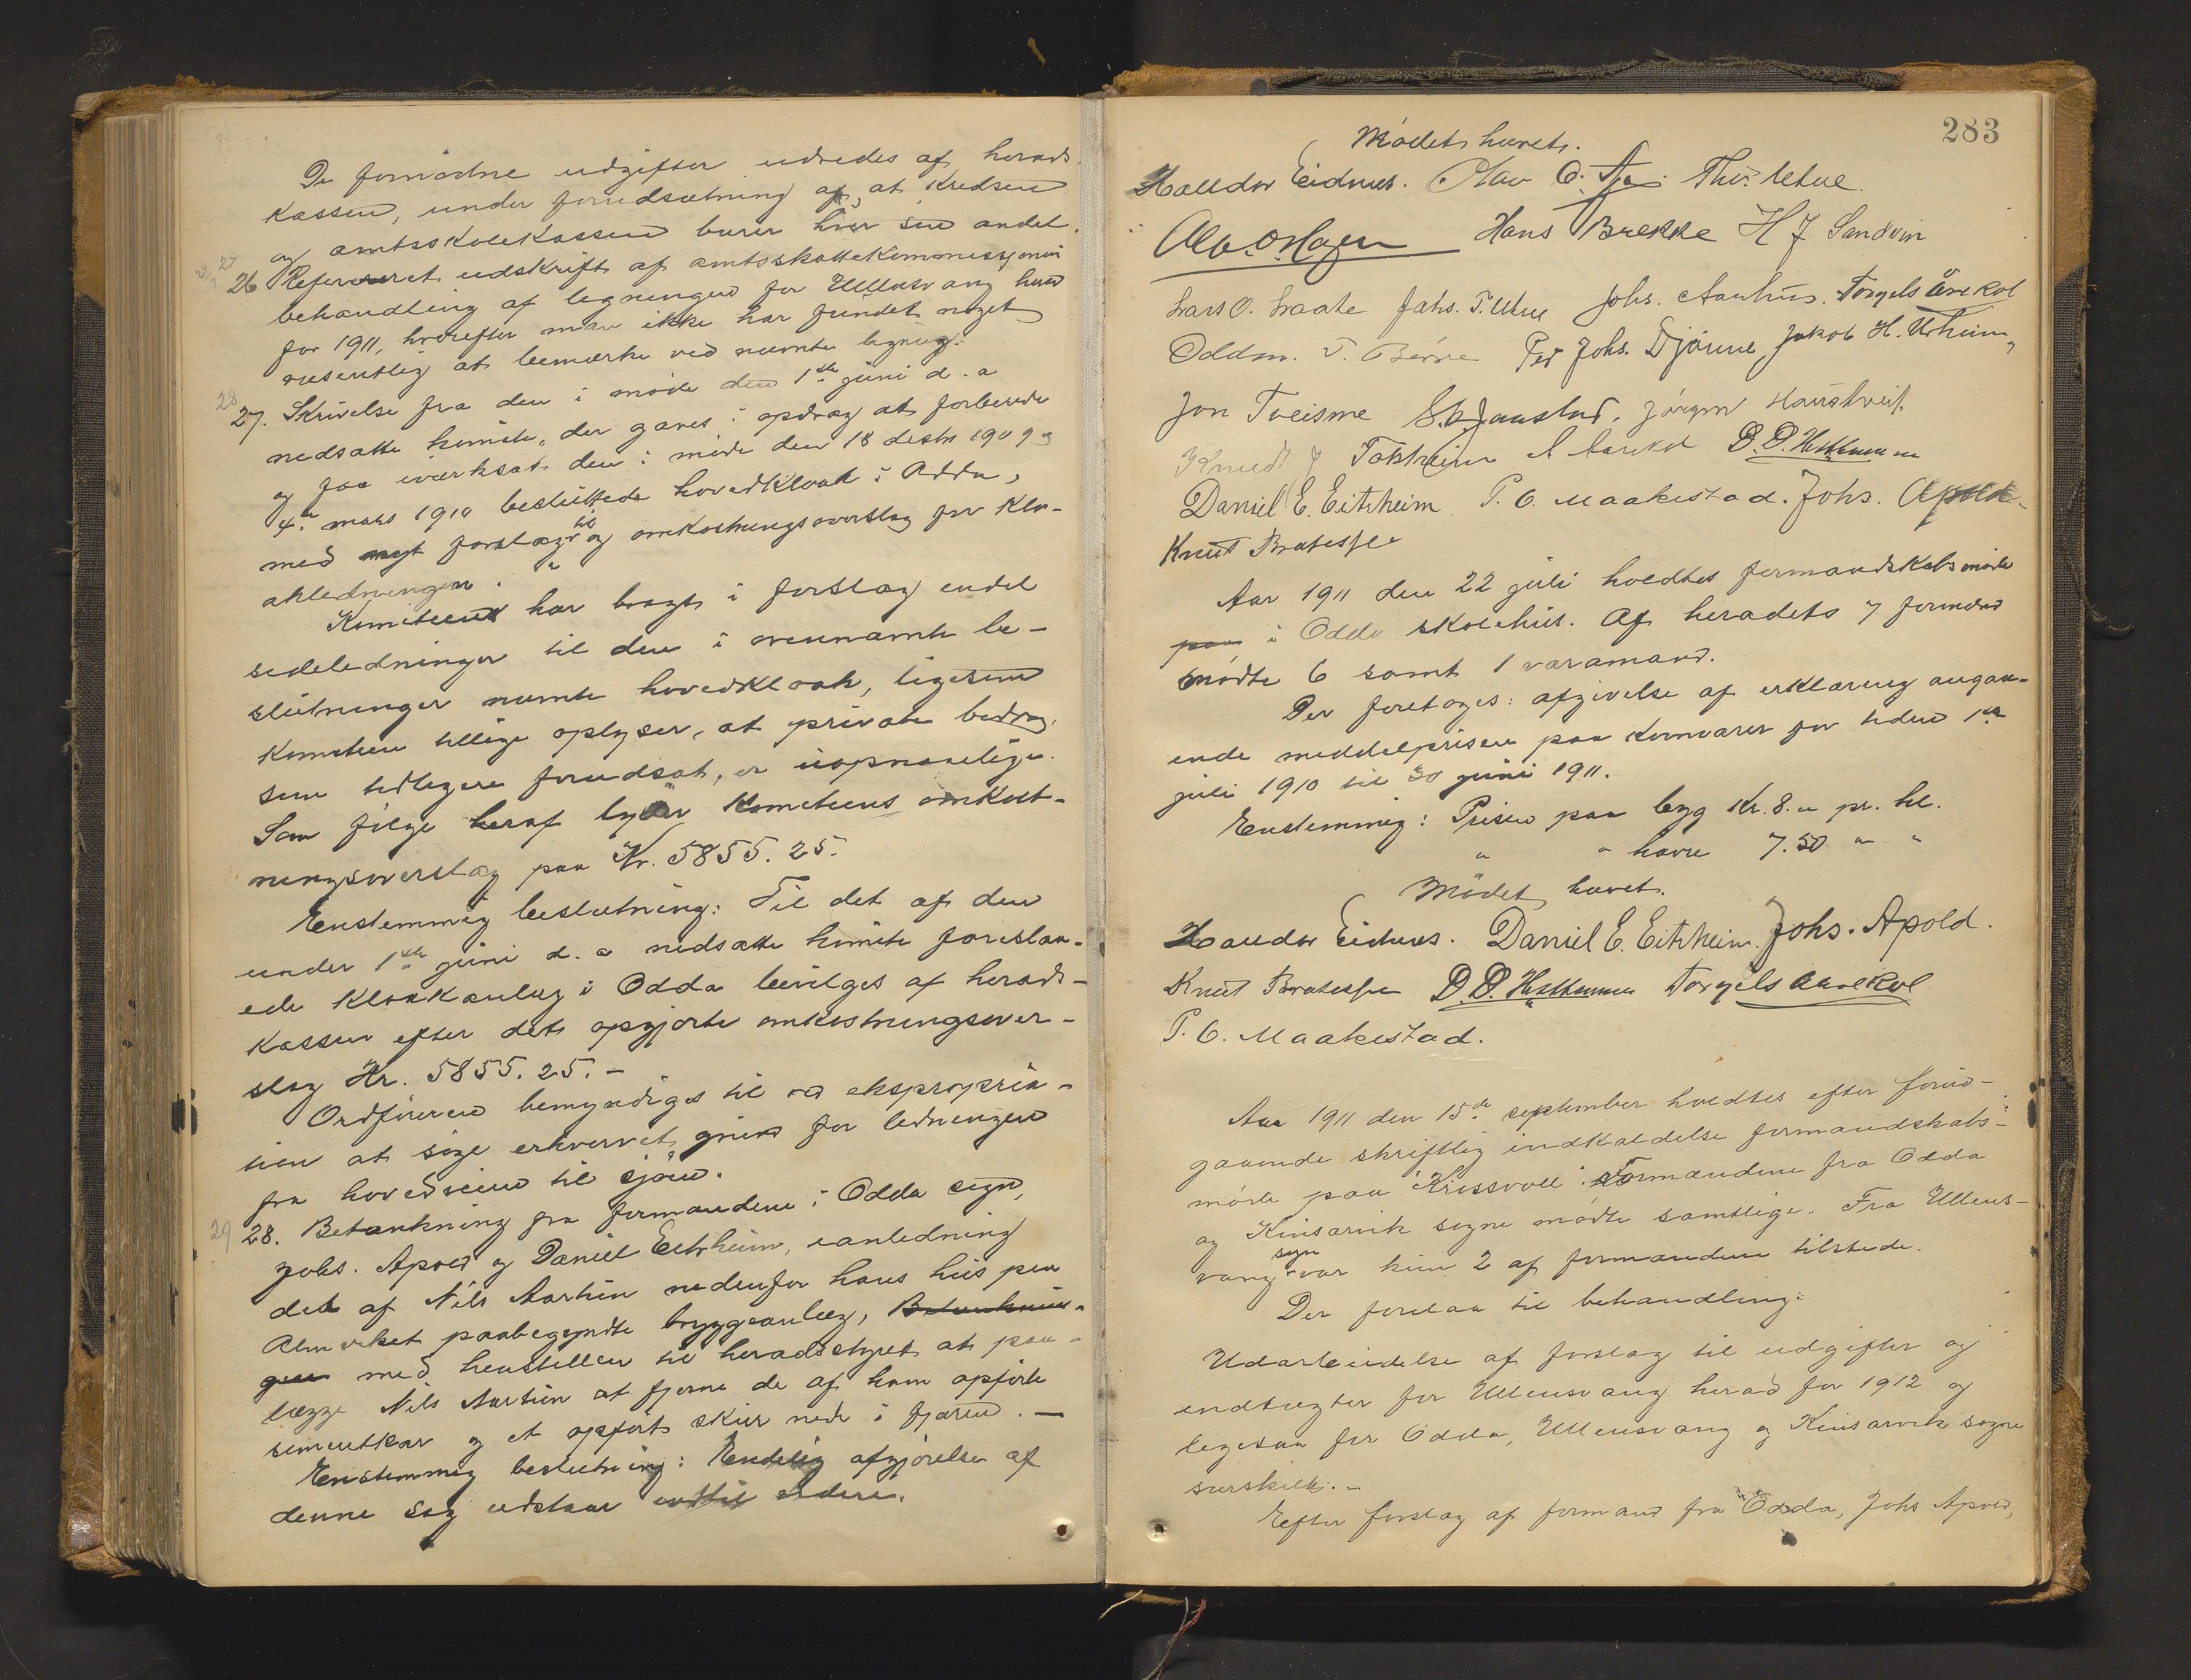 De fornödne udgifter udredes af herads-
kassen, under forudsætning af, at kredsen
og amtsskolekassen bærer hver sin andel.
27
26 Refereret udskrift af amtsskattekommissionens
behandling af ligningen for Ullensvang herad
for 1911, hvorefter man ikke har fundet noget
væsentlig at bemærke ved nævnte ligning.
28
27. Skrivelse fra den i möde den 1ste juni d. a
nedsatte komite, der gaves i opdrag at forberede
og faa iværksat den i möde den 18 desbr 1909 og
4de mars 1910 besluttede hovedkloak i Odda,
med nyt forslag til og omkostningsoverslag for klo-
akledningen.
Komiteen har bragt i forslag endel
sideledninger til den i ovennævnte be-
slutninger nævnte hovedkloak, ligesom
komiteen tillige oplyser, at private bidrag,
som tidligere forudsat, er uopnaaelige.
Som følge heraf lyder komiteens omkost-
ningsoverslag paa Kr. 5855.25.
Enstemmig beslutning: Til det af den
under 1ste juni d. a nedsatte komite foreslaa-
ede kloakanlæg i Odda bevilges af herads-
kassen efter det opgjorte omkostningsover-
slag Kr. 5855.25.-
Ordføreren bemyndiges til ved ekspropria-
tion at søge erhvervet grund for ledningen
fra hovedveien til sjøen.
29 28. Betænkning fra formændene i Odda sogn,
Johs. Apold og Daniel Eitrheim, i anledning
det af Nils Aartun nedenfor hans hus paa
Almerket paabegyndte bryggeanlæg,
med henstillen til heradsstyret at paa-
lægge Nils Aartun at fjerne de af ham opførte
sementkar og et opført skur nede i fjæren. -
Enstemmig beslutning: Endelig afgjörelse af
denne sag udstaar indtil videre.
283
Mödet hævet.
Halldor Eidnes. Olav O. Aga. Thos. Utne.
Olav. O. Hagen Hans Brekke H J Sandvin
Lars O. Laate Johs. T. Utne Johs. Aarhus. Torgels Årekol
Oddm. T. Børve Per Johs. Djönne, Jakob H. Urheim,
Jon Tveisme S. Jaastad, Jørgen Haustveit.
Knud J Tokheim A Aarekol D. D. Helleland
Daniel E. Eitrheim P. O. Maakestad. Johs. Apold.
Knut Bratespe
Aar 1911 den 22 juli holdtes formandskabsmöde
paa i Odda skolehus. Af heradets 7 formænd
mödte 6 samt 1 varamand.
Der foretoges: afgivelse af erklæring angaa-
ende middelprisen paa kornvarer for tiden 1ste
juli 1910 til 30 juni 1911.
Enstemmig: Prisen paa byg Kr. 8.- pr. hl.
" " havre 7.50 " "
Mödet hævet.
Halldor Eidnes. Daniel E. Eitrheim. Johs. Apold.
Knut Bratespe D. D. Helleland Torgels Aarekol
P. O. Maakestad.
Aar 1911 den 15de september holdtes efter forud-
gaaende skriftlig indkaldelse formandskabs-
möde paa Krossvoll. Formændene fra Odda
og Kinsarvik sogne mödte samtlige. Fra Ullens-
vang sogn var kun 2 af formændene tilstede.
Der forelaa til behandling:
Udarbeidelse af forslag til udgifter og
indtægter for Ullensvang herad for 1912 og
ligesaa for Odda, Ullensvang og Kinsarvik sogne
særskilt. -
Efter forslag af formand fra Odda, Johs Apold,